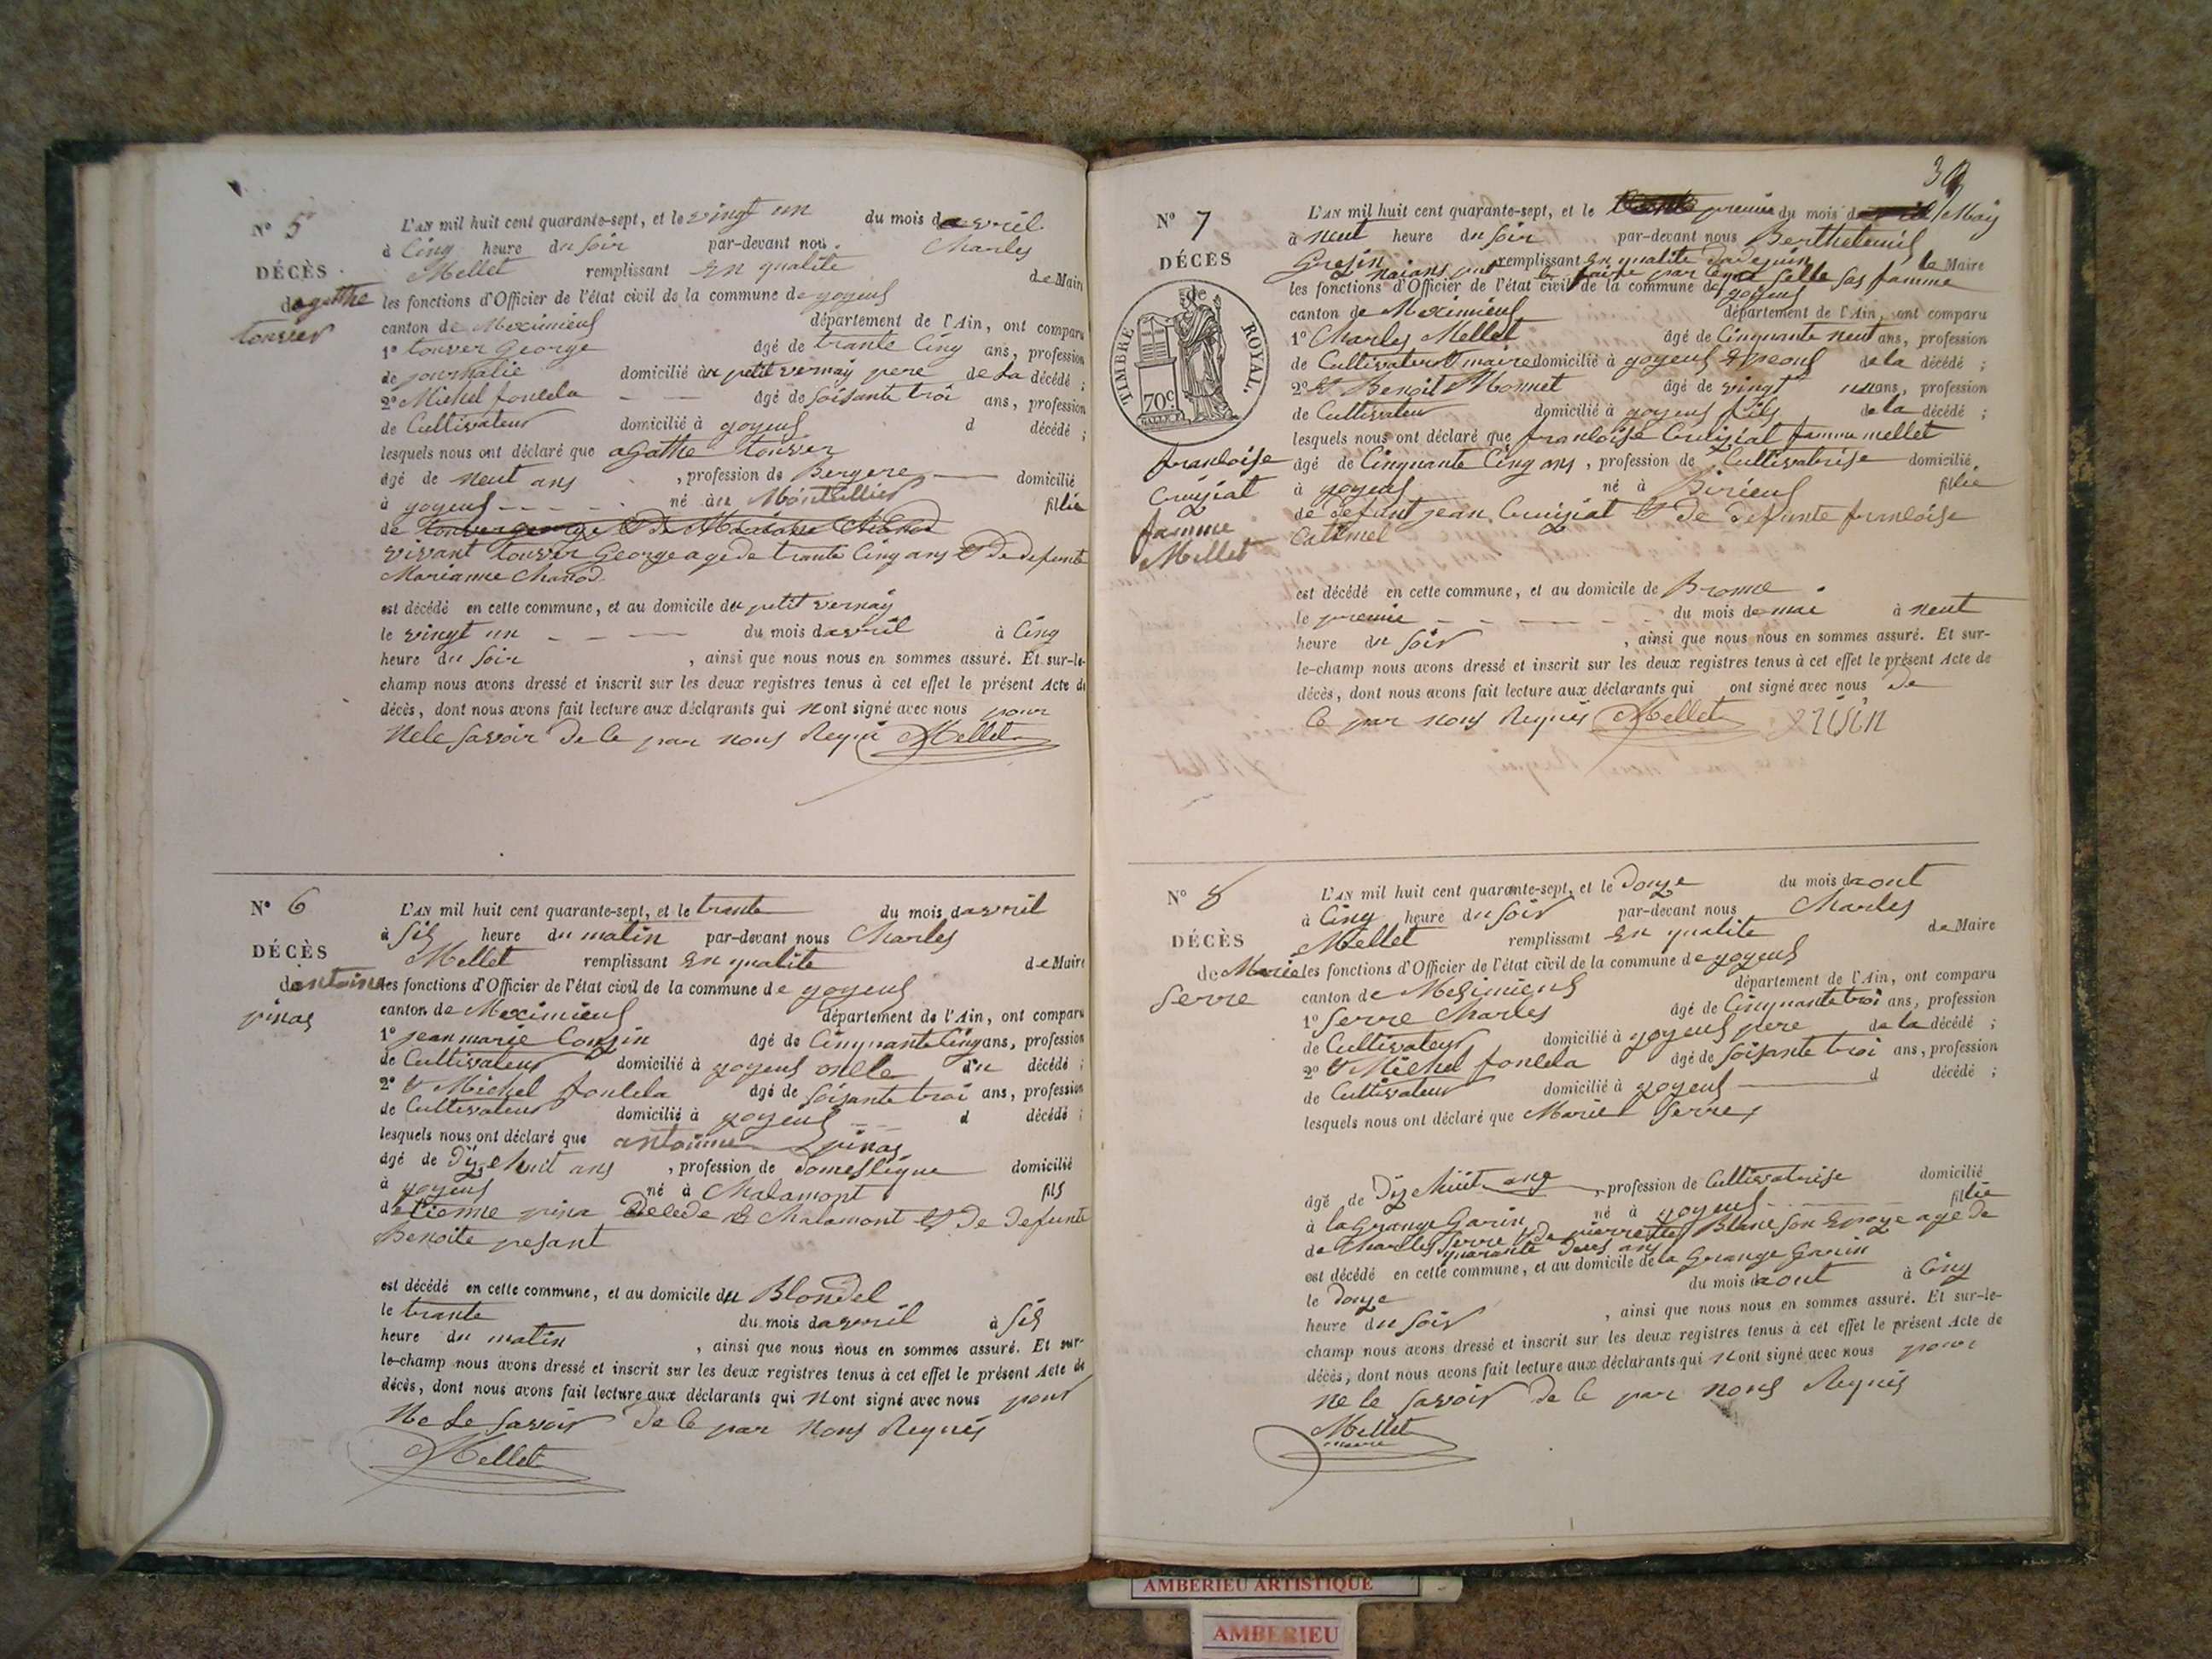 N° 5
DÉCÈS
dagathe
touver
L'AN mil huit cent quarante-sept, et le vingt un du mois davril
à Cinq heure du soir par-devant nous Charles
Mellet remplissant En qualite de Maire
les fonctions d'Officier de l'état civil de la commune de joyeux
canton de Meximieux département de l'Ain, ont comparu
1° touver George âgé de trante Cinq ans, profession
de journalie domicilié au petit vernay pere de La décédé ;
2° Michel fontela âgé de soisante troi ans, profession
de Cultivateur domicilié à joyeux d décédé ;
lesquels nous ont déclaré que agathe touver
âgé de neuf ans, profession de Bergere domicilié
à joyeux né au Montellier fillie
de touver george et de Mariane Chanod
vivant touver George age de trante Cinq ans et De defunte
Marianne Chanod
est décédé en cette commune, et au domicile du petit vernay
le vingt un du mois davril à Cinq
heure du soir, ainsi que nous nous en sommes assuré. Et sur-le-
champ nous avons dressé et inscrit sur les deux registres tenus à cet effet le présent Acte de
décès, dont nous avons fait lecture aux déclarants qui nont signé avec nous pour
Ne le savoir De Ce par nous Requi Mellet
N° 6
DÉCÈS
dantoine
pinas
L'AN mil huit cent quarante-sept, et le trante du mois davril
à Sis heure du matin par-devant nous Charles
Mellet remplissant En qualite de Maire
les fonctions d'Officier de l'état civil de la commune de joyeux
canton de Meximieux département de l'Ain, ont comparu
1° jean marie Couzin âgé de Cinquante Cinq ans, profession
de Cultivateur domicilié à joyeux oncle du décédé ;
2° et Michel fontela âgé de soisante troi ans, profession
de Cultivateur domicilié à joyeux d décédé ;
lesquels nous ont déclaré que antoinne pinas
âgé de Dize huit ans, profession de Domestique domicilié
à joyeux né à Chalamont fils
detienne pina Decede a Chalamont et De Defunte
Benoite pesant
est décédé en cette commune, et au domicile du Blondel
le trante du mois davril à Sis
heure du matin, ainsi que nous nous en sommes assuré. Et sur-
le-champ nous avons dressé et inscrit sur les deux registres tenus à cet effet le présent Acte de
décès, dont nous avons fait lecture aux déclarants qui nont signé avec nous pour
Ne Le savoir De Ce par nous Requis
Mellet
N° 7
DÉCÈS
de
TIMBRE ROYAL.
70c
francoise
Cruiziat
famme
Mellet
L'AN mil huit cent quarante-sept, et le premie du mois de May
à neuf heure du soir par-devant nous Berthelemis
Gresin remplissant En qualite dadejoin le Maire
naians put le faire par ce que selle sas famme
les fonctions d'Officier de l'état civil de la commune de joyeux
canton de Meximieux département de l'Ain, ont comparu
1° Charles Mellet âgé de Cinquante neuf ans, profession
de Cultivateur et maire domicilié à joyeux Epeous de la décédé ;
2° et Benoit Monnet âgé de vingt ans, profession
de Cultivateur domicilié à joyeux fils de la décédé ;
lesquels nous ont déclaré que francoise Cruiziat famme mellet
âgé de Cinquante Cinq ans, profession de Cultivatrise domicilié
à joyeux né à Birieux fillie
de defunt jean Cruiziat et De Defunte francoise
Catimel
est décédé en cette commune, et au domicile de Bronne
le premie du mois de mai à neuf
heure du soir, ainsi que nous nous en sommes assuré. Et sur-
le-champ nous avons dressé et inscrit sur les deux registres tenus à cet effet le présent Acte de
décès, dont nous avons fait lecture aux déclarants qui ont signé avec nous De
Ce par nous Requis Mellet
N° 8
DÉCÈS
de Marie
Serre
L'AN mil huit cent quarante-sept, et le Douze du mois daout
à Cinq heure du soir par-devant nous Charles
Mellet remplissant En qualite de Maire
les fonctions d'Officier de l'état civil de la commune de joyeux
canton de Mesimieux département de l'Ain, ont comparu
1° Serre Charles âgé de Cinquante troi ans, profession
de Cultivateur domicilié à joyeux pere de la décédé ;
2° et Michel fontela âgé de soisante troi ans, profession
de Cultivateur domicilié à joyeux d décédé ;
lesquels nous ont déclaré que Marie Serre
âgé de Dize huit ans, profession de Cultivatrise domicilié
à la Grange Garin né à joyeux fillie
de Charles Serre et de pierrette Blanc son Epoze age de
quarante Deus ans
est décédé en cette commune, et au domicile de la Grange Garin
le Douze du mois daout à Cinq
heure du soir, ainsi que nous nous en sommes assuré. Et sur-le-
champ nous avons dressé et inscrit sur les deux registres tenus à cet effet le présent Acte de
décès, dont nous avons fait lecture aux déclarants qui nont signé avec nous pour
ne le savoir De Ce par nous Requis
Mellet
maire
AMBERIEU ARTISTIQUE
AMBERIEU